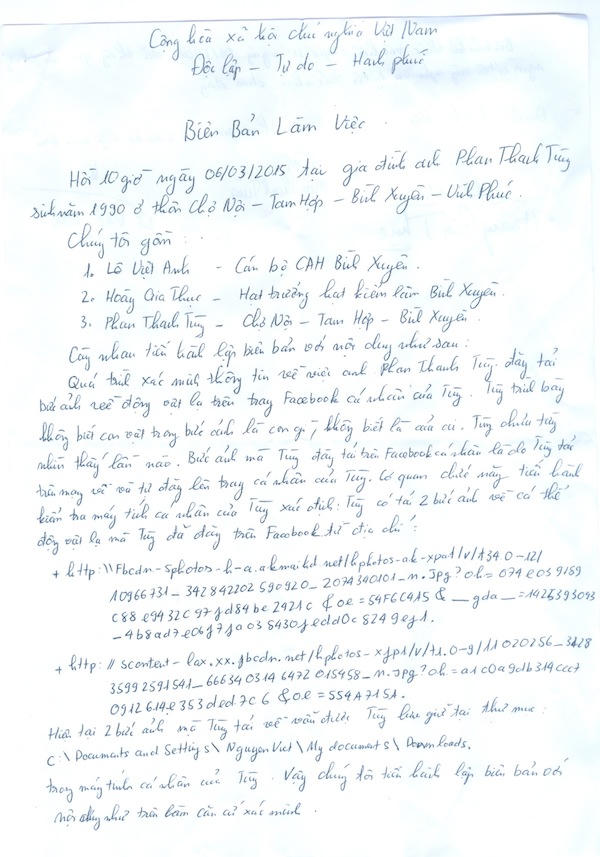 Cộng hòa xã hội chủ nghĩa Việt Nam
Độc lập - Tự do - Hạnh phúc
Biên Bản Làm Việc.
Hồi 10 giờ ngày 06/03/2015 tại gia đình anh Phan Thanh Tùng
sinh năm 1990 ở thôn Chợ Nội - Tam Hợp - Bình Xuyên - Vĩnh Phúc.
Chúng tôi gồm:
1. Lô Việt Anh - Cán bộ CAH Bình Xuyên.
2. Hoàng Gia Thục - Hạt trưởng hạt kiểm lâm Bình Xuyên.
3. Phan Thanh Tùng - Chợ Nội - Tam Hợp - Bình Xuyên.
Cùng nhau tiến hành lập biên bản với nội dung như sau:
Quá trình xác minh thông tin về việc anh Phan Thanh Tùng đăng tải
bức ảnh về động vật lạ trên trang Facebook cá nhân của Tùng. Tùng trình bày
không biết con vật trong bức ảnh là con gì, không biết là của ai. Tùng chưa từng
nhìn thấy lần nào. Bức ảnh mà Tùng đăng tải trên Facebook cá nhân là do Tùng tải
trên mạng về và tự đăng lên trang cá nhân của Tùng. Cơ quan chức năng tiến hành
kiểm tra máy tính cá nhân của Tùng xác định: Tùng có tải 2 bức ảnh về cá thể
động vật lạ mà Tùng đã đăng trên Facebook từ địa chỉ:
+ http:\\Fbcdn-sphotos-h-a.akmaihd.net/hphotos-ak-xpa1/v/t34.0-12/
10966731_342842202590920_2074340101_n.jpg?oh=074e039189
c88e9432c97fd84be2421c&oe=54F6C415&__gda__=1425393093
_4b8ad7e06f7fa038430fedd0c8249ef1.
+ http://scontent-lax.xx.fbcdn.net/hphotos-xfp1/v/t1.0-9/11020256_3428
35992591541_6663403146472015458_n.jpg?oh=a1c0a9db314ccc7
0912614e353ded7c6&oe=554A7151.
Hiện tại 2 bức ảnh mà Tùng tải về vẫn được Tùng lưu giữ tại thư mục:
C:\Documents and Settings\NguyenViet\My documents\Downloads.
trong máy tính cá nhân của Tùng. Vậy chúng tôi tiến hành lập biên bản với
nội dung như trên làm căn cứ xác minh.